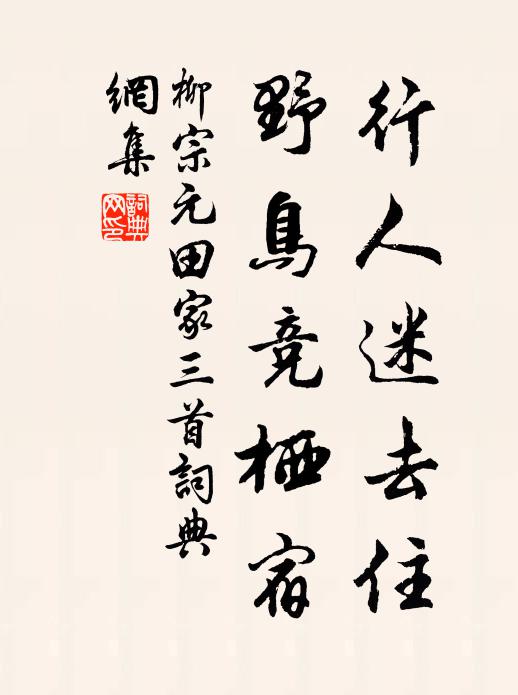 行人迷去住
野鳥竞栖宿
柳宗元田家三首詞典
網集
詞典
网印